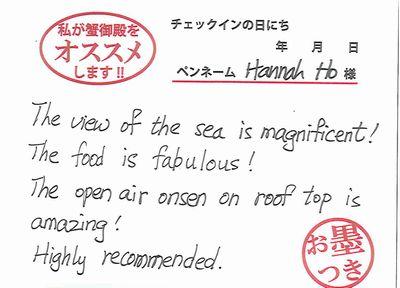 私が蟹御殿を
オススメ
します!!
チェックインの日にち
年 月 日
ペンネーム Hannah Ho 様
The view of the sea is magnificent!
The food is fabulous!
The open air onsen on roof top is
amazing!
Highly recommended.
お墨
つき